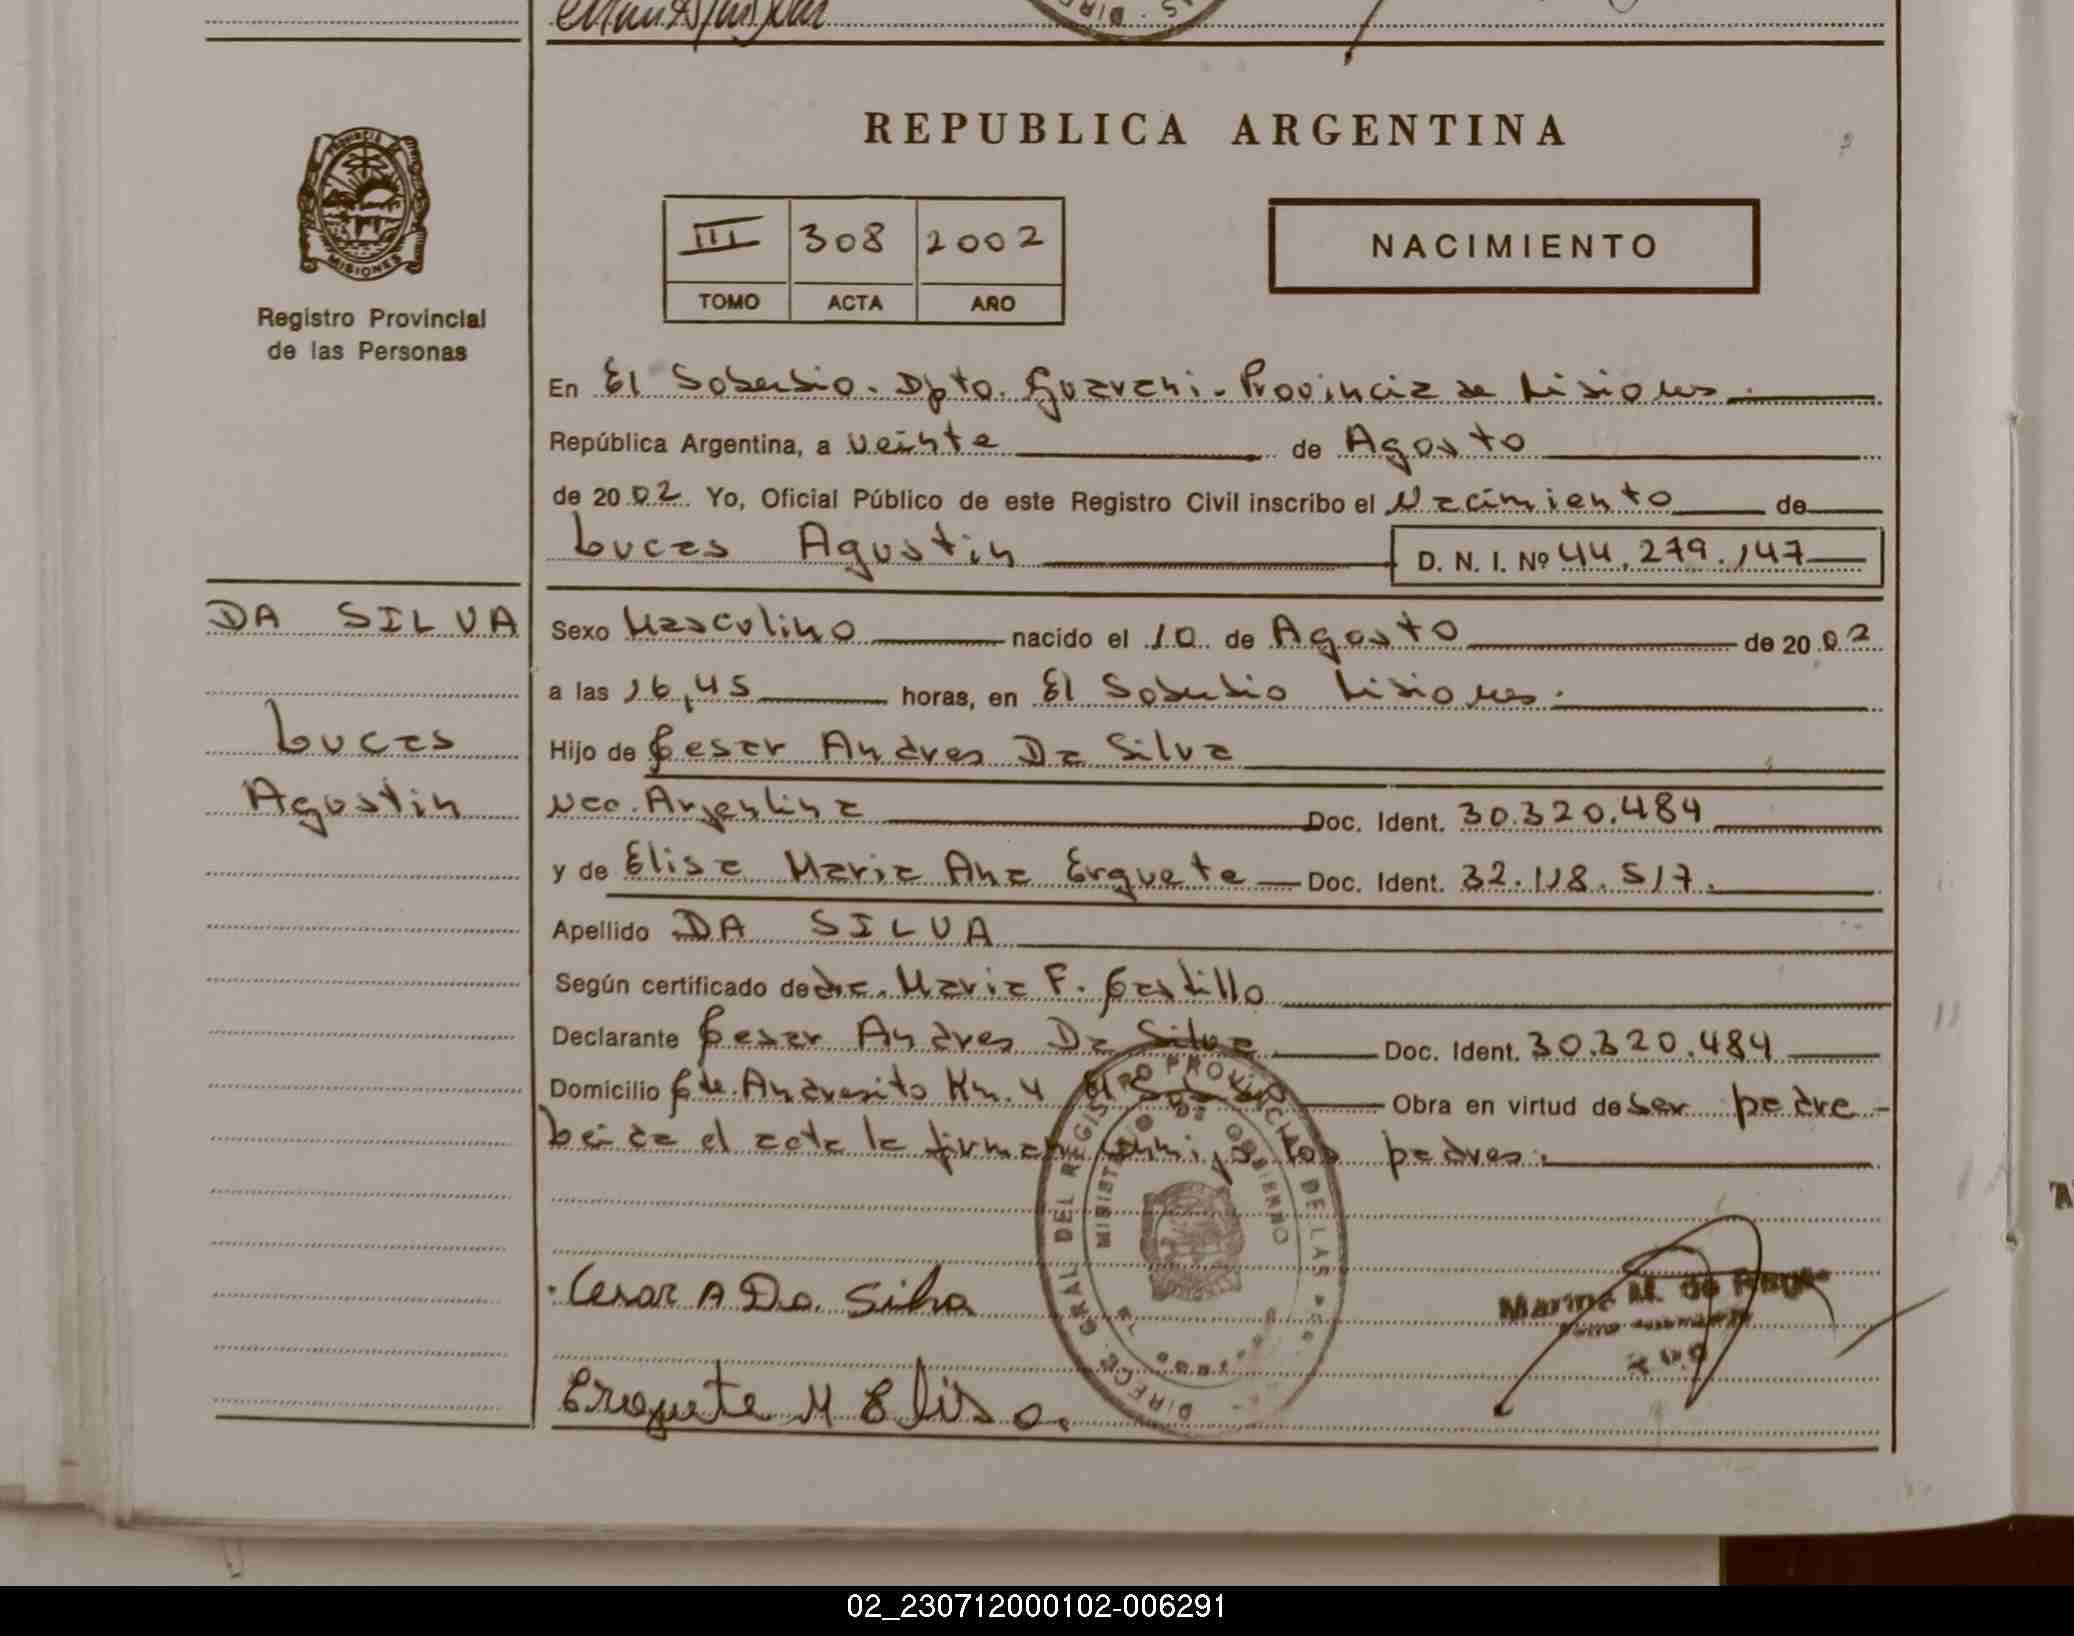 REPUBLICA ARGENTINA
PROVINCIA DE
MISIONES
Registro Provincial
de las Personas
III 308 2002
TOMO ACTA AÑO
NACIMIENTO
En El Soberbio. Dpto. Guarani. Provincia de Misiones.
República Argentina, a veinte de Agosto
de 2002. Yo, Oficial Público de este Registro Civil inscribo el Nacimiento de
Lucas Agustin D. N. I. Nº 44.279.147
DA SILVA
Lucas
Agustin
Sexo Masculino nacido el 10 de Agosto de 2002
a las 16,45 horas, en El Soberbio Misiones.
Hijo de Cesar Andres Da Silva
Nac. Argentina Doc. Ident. 30.320.484
y de Elisa Maria Ana Erguete Doc. Ident. 32.118.517.
Apellido DA SILVA
Según certificado de dra. Maria F. Castillo
Declarante Cesar Andres Da Silva Doc. Ident. 30.320.484
Domicilio Cte. Andresito Km. 4 El Soberbio Obra en virtud de ser padre -
Leida el acta la firman conmigo los padres.
DIRECC. GRAL DEL REGISTRO PROVINCIAL DE LAS
MINISTERIO DE GOBIERNO
Cesar A Da. Silva
Marina M. de
Erguete M Elisa.
02_230712000102-006291